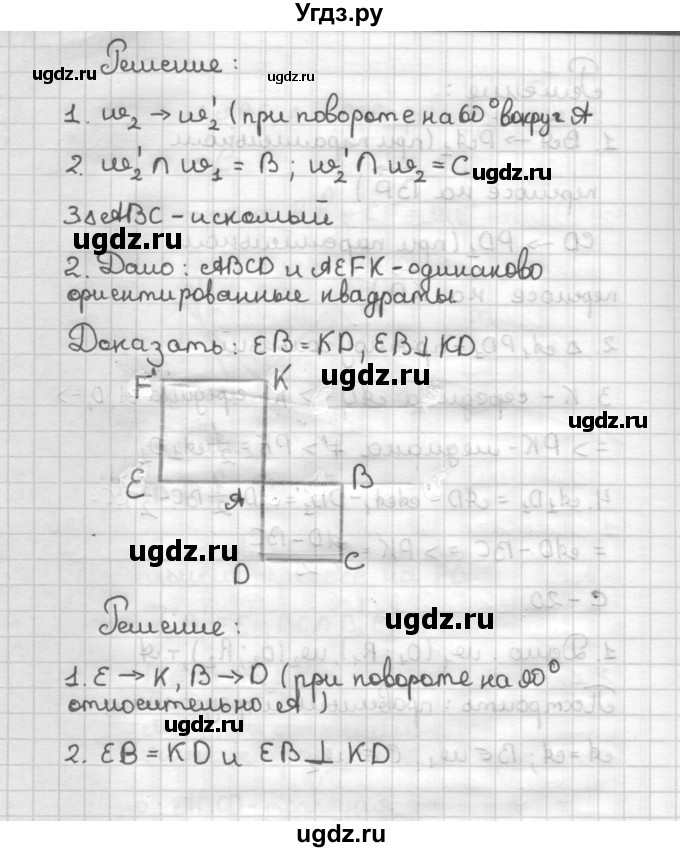 Угдз.ру
Решение :
ugdz.ru
ugdz.ru
1. ω₂ → ω₂' (при повороте на 60° вокруг A
2. ω₂' ∩ ω₁ = B ; ω₂' ∩ ω₂ = C
ugdz.ru
3. ABC - искомый
ugdz.ru
2. Дано : ABCD и AEFK - одинаково
ориентированные квадраты
Доказать : EB = KD, EB ⊥ KD
ugdz.ru
F
K
ugdz.ru
E
A
B
ugdz.ru
D
C
Решение :
ugdz.ru
1. E → K, B → D (при повороте на 90°
относительно A )
ugdz.ru
2. EB = KD и EB ⊥ KD
ugdz.ru
ugdz.ru
ugdz.ru